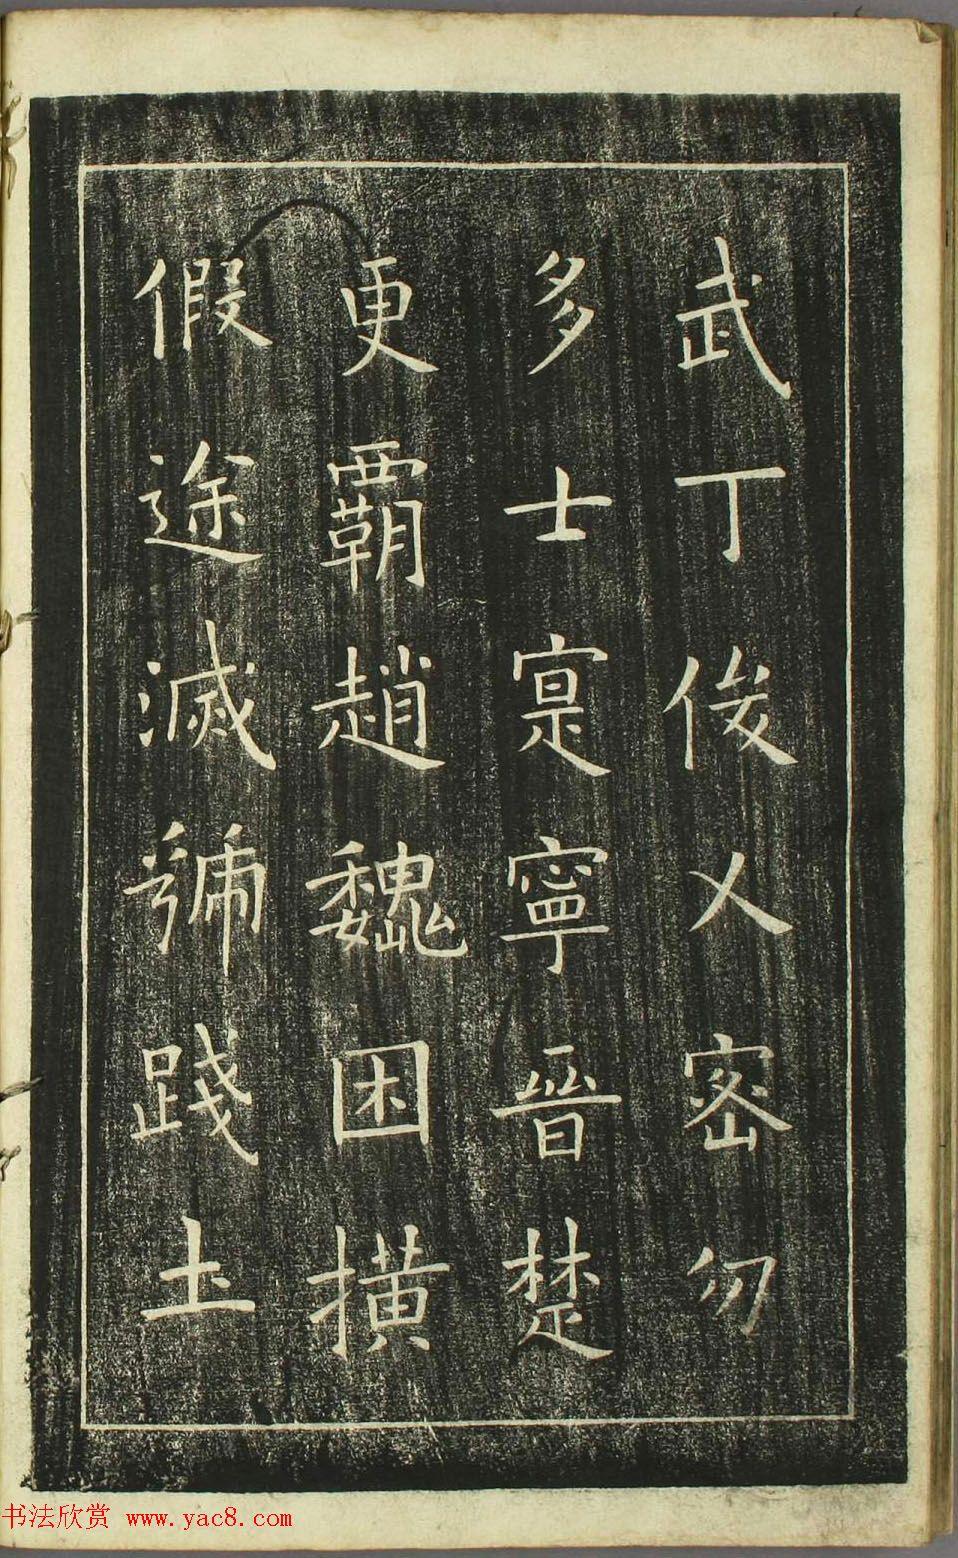 武丁俊乂密勿
多士寔寧晉楚
更霸趙魏困橫
假途滅虢踐土
书法欣赏 www.yac8.com